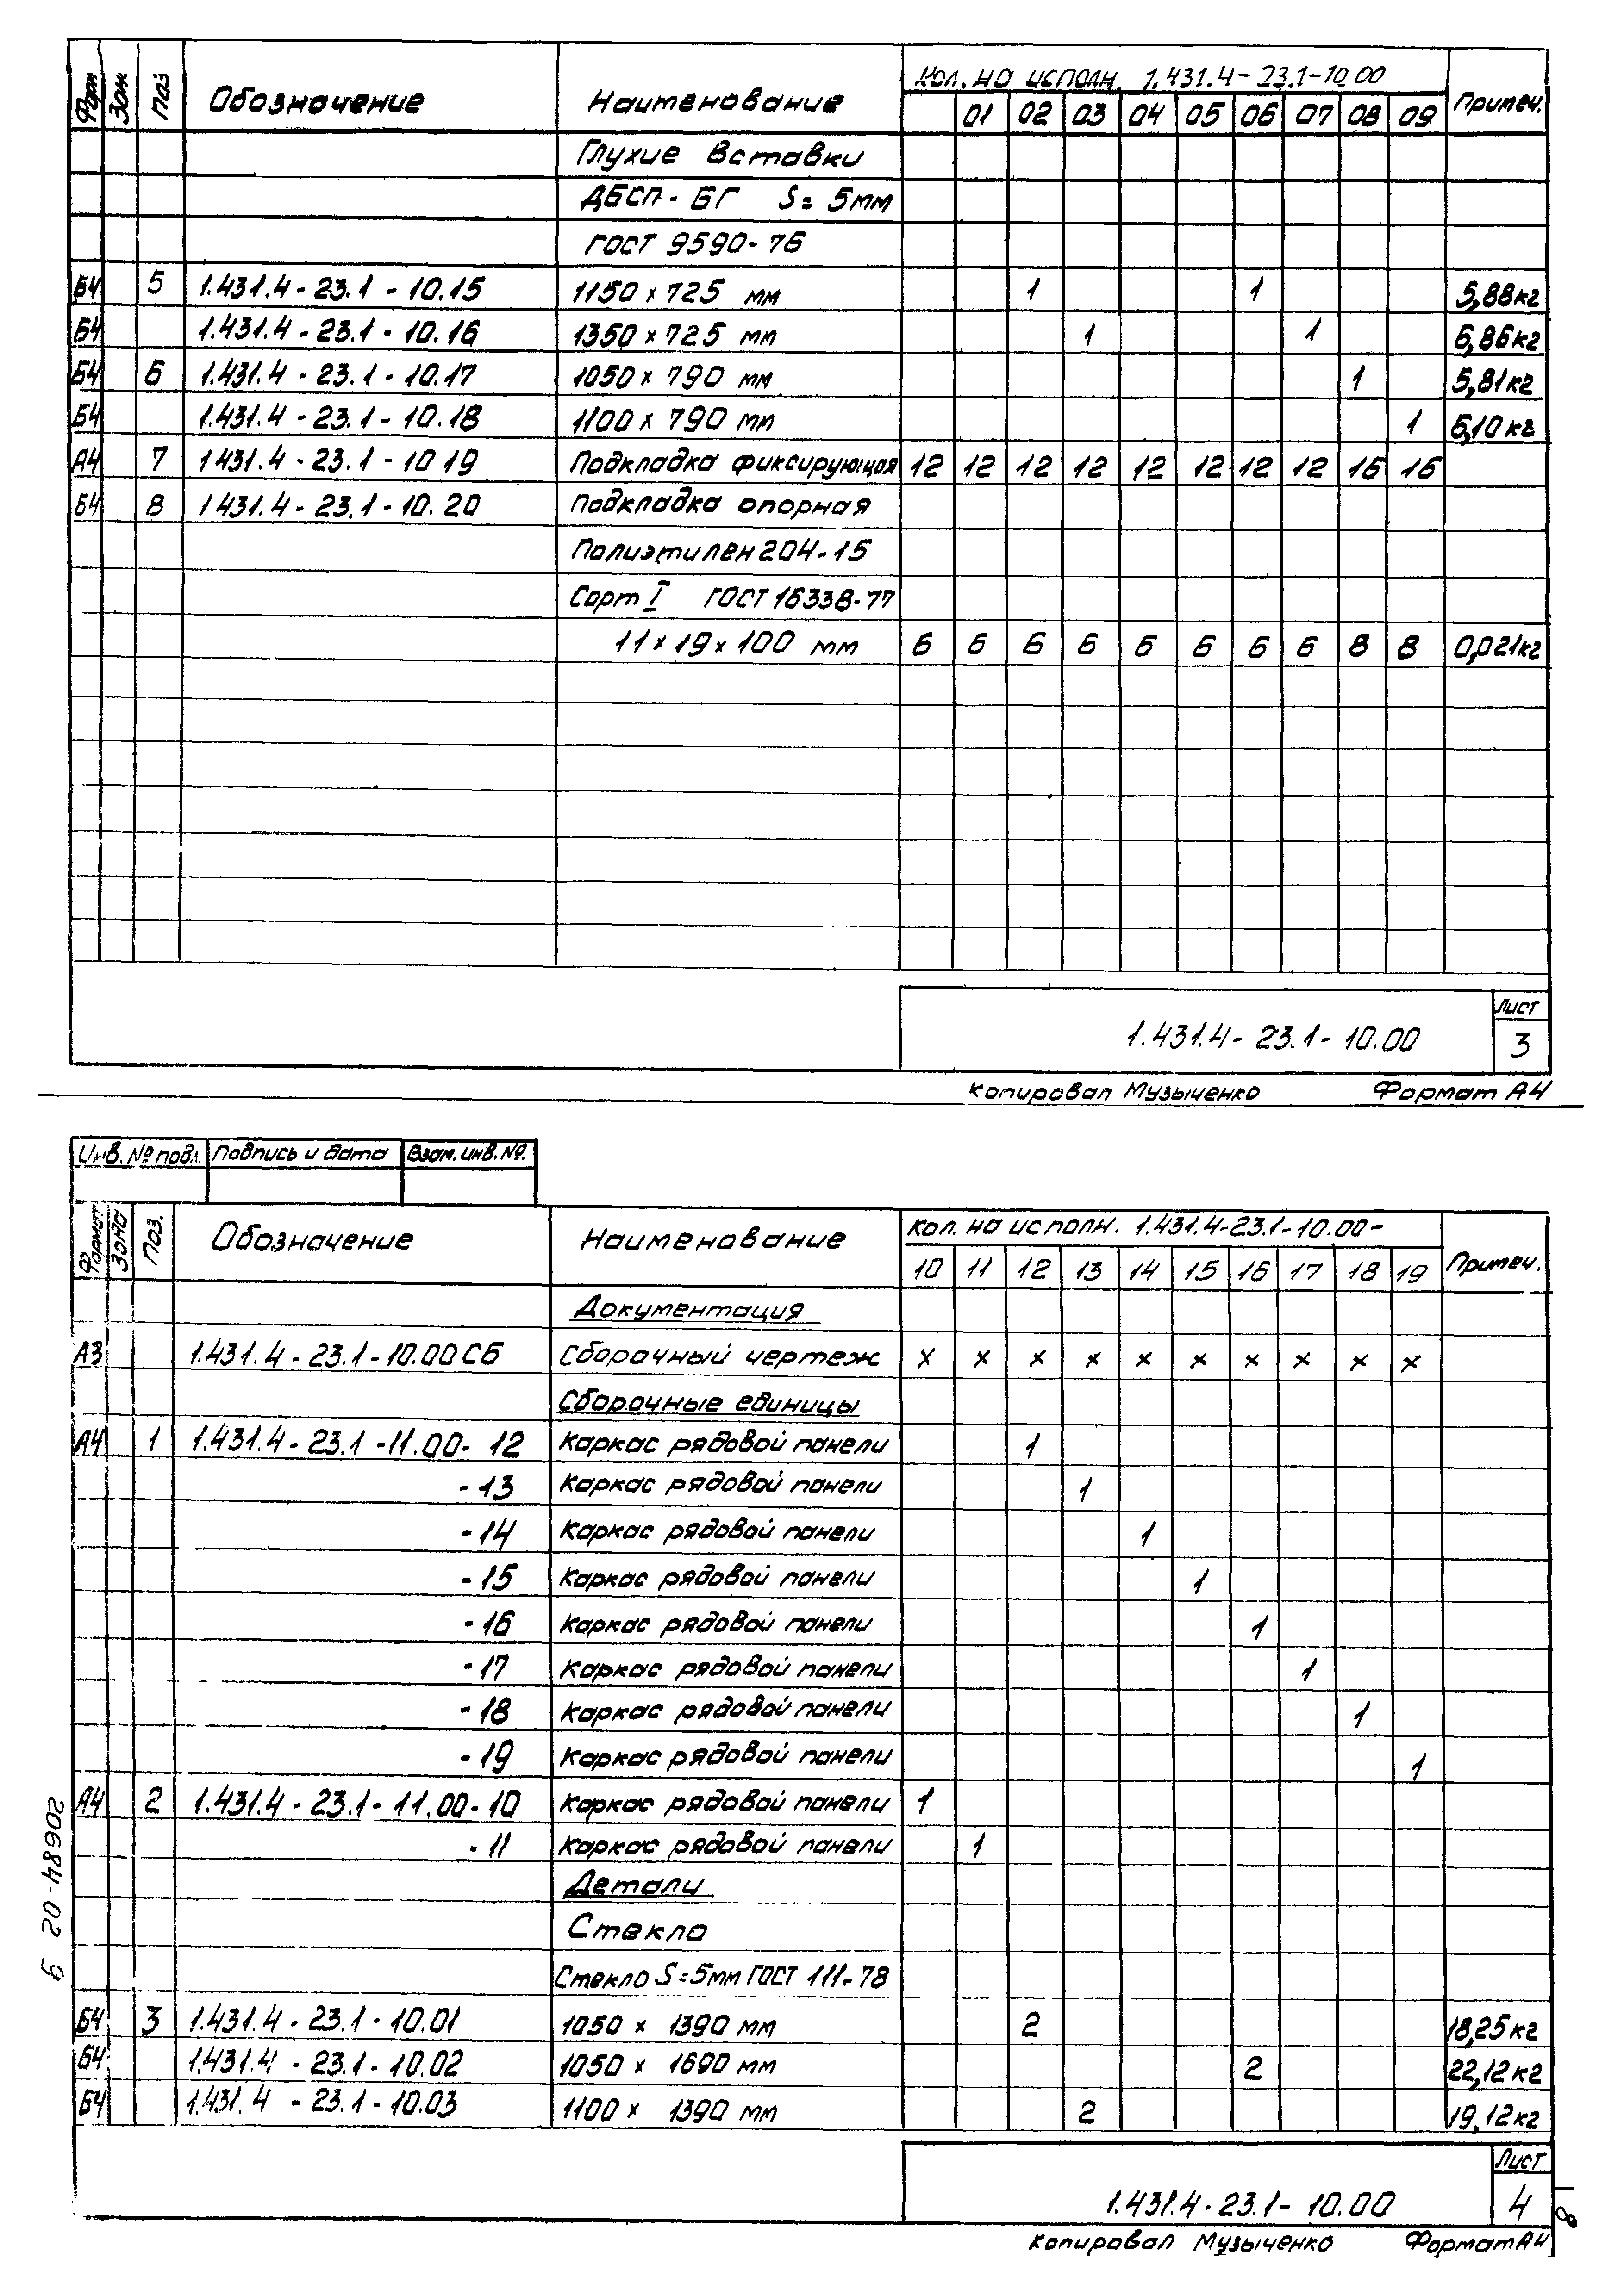 Форм Зон Поз Обозначение Наименование Кол. на исполн. 1.431.4-23.1-10.00 Примеч.
01 02 03 04 05 06 07 08 09
Глухие вставки
ДБСП-БГ S=5мм
ГОСТ 9590-76
Б4 5 1.431.4-23.1-10.15 1150×725 мм 1 1 5,88кг
Б4 1.431.4-23.1-10.16 1350×725 мм 1 1 6,86кг
Б4 6 1.431.4-23.1-10.17 1050×790 мм 1 5,81кг
Б4 1.431.4-23.1-10.18 1100×790 мм 1 6,10кг
А4 7 1431.4-23.1-1019 Подкладка фиксирующая 12 12 12 12 12 12 12 12 16 16
Б4 8 1431.4-23.1-10.20 Подкладка опорная
Полиэтилен 204-15
Сорт I ГОСТ 16338-77
11×19×100 мм 6 6 6 6 6 6 6 6 8 8 0,021кг
Лист
1.431.4-23.1-10.00 3
Копировал Музыченко Формат А4
Инв. № подл. Подпись и дата Взам. инв. №.
Формат Зона Поз. Обозначение Наименование Кол. на исполн. 1.431.4-23.1-10.00- Примеч.
10 11 12 13 14 15 16 17 18 19
Документация
А3 1.431.4-23.1-10.00 СБ Сборочный чертеж × × × × × × × × × ×
Сборочные единицы
А4 1 1.431.4-23.1-11.00-12 Каркас рядовой панели 1
-13 Каркас рядовой панели 1
-14 Каркас рядовой панели 1
-15 Каркас рядовой панели 1
-16 Каркас рядовой панели 1
-17 Каркас рядовой панели 1
-18 Каркас рядовой панели 1
-19 Каркас рядовой панели 1
А4 2 1.431.4-23.1-11.00-10 Каркас рядовой панели 1
-11 Каркас рядовой панели 1
Детали
Стекло
Стекло S=5мм ГОСТ 111-78
Б4 3 1.431.4-23.1-10.01 1050 × 1390 мм 2 18,25кг
Б4 1.431.4-23.1-10.02 1050 × 1690 мм 2 22,12кг
Б4 1.431.4-23.1-10.03 1100 × 1390 мм 2 19,12кг
Лист
1.431.4-23.1-10.00 4
Копировал Музыченко Формат А4
20684-02 9
8